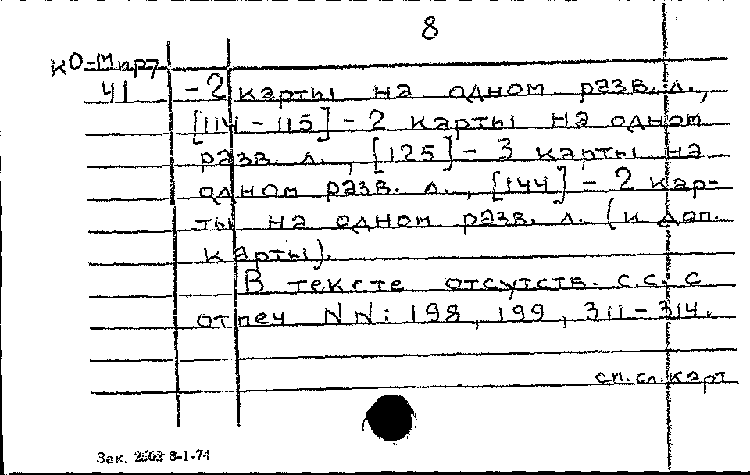 8
КО-Мирт
41 - 2 карты на одном разв. л.,
[114 - 115] - 2 карты на одном
разв. л., [125] - 3 карты на
одном разв. л., [144] - 2 кар-
ты на одном разв. л. (и доп.
карты).
В тексте отсутств. с.с. с
отпеч NN: 198, 199, 311-314.
сп. сл. карт
Зак. 2502 8-1-74